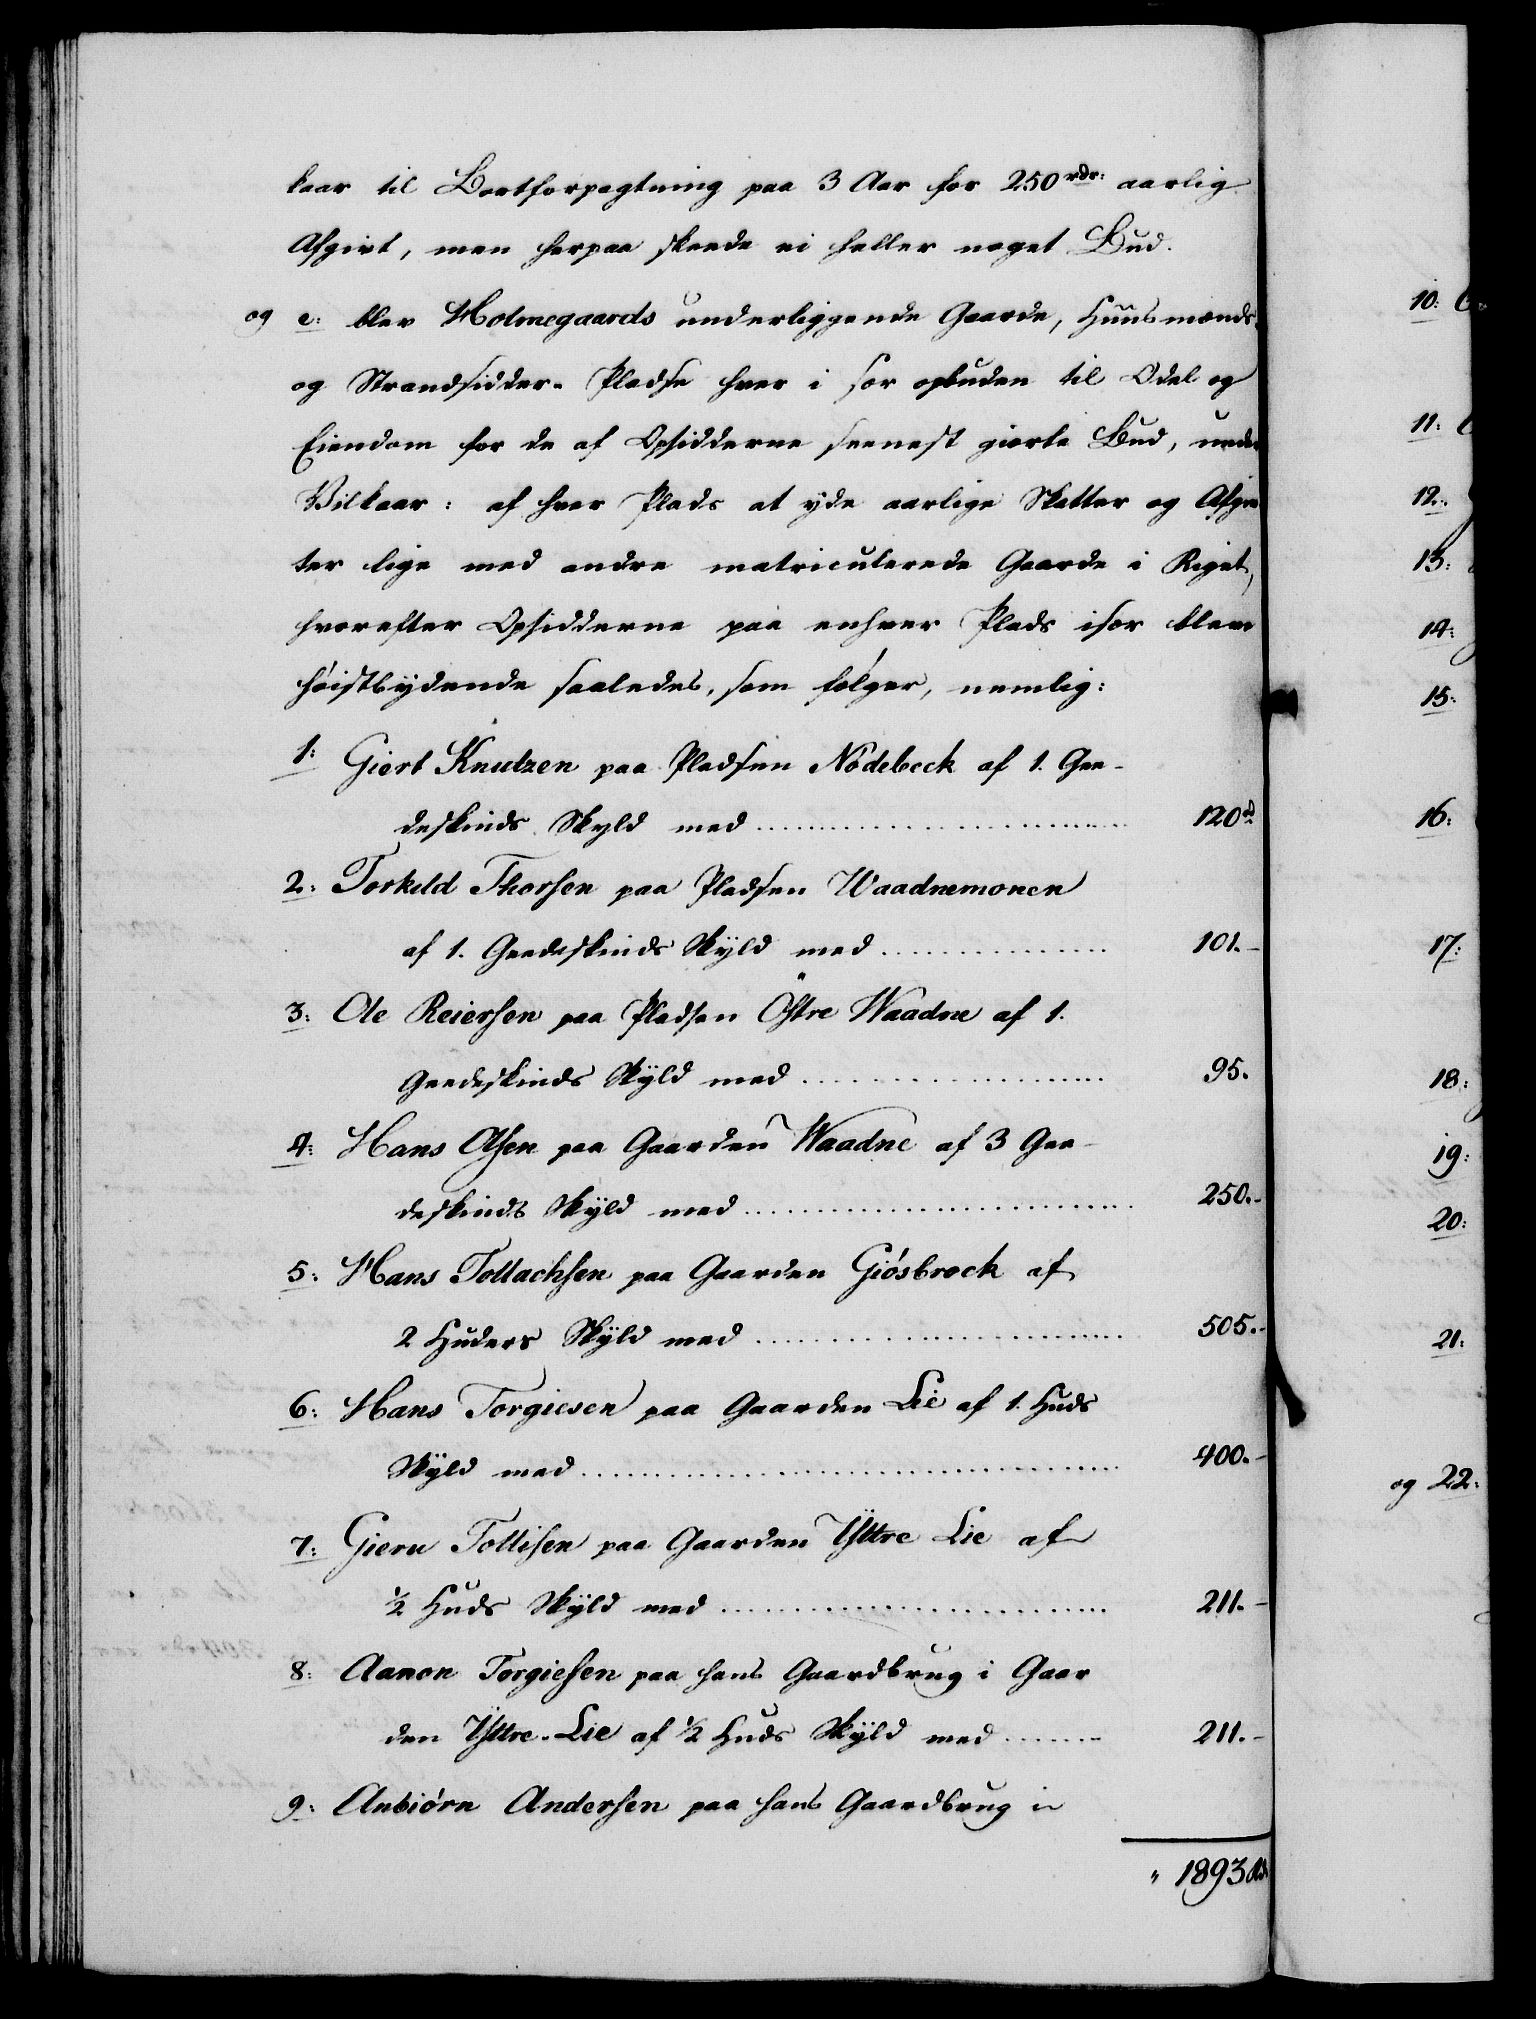 kaar til Bortforpagtning paa 3 Aar for 250 rdr: aarlig
Afgivt, men herpaa skeede ei heller noget Bud.
og e: blev Holmegaards underliggende Gaarde, Huusmands
og Strandsidder-Pladse hver i sær opbuden til Odel og
Eiendom for de af Opsidderne seenest giorte Bud, under
Vilkaar: af hver Plads at yde aarlige Skatter og Afgiv
ter lige med andre matriculerede Gaarde i Riget,
hvorefter Opsidderne paa enhver Plads især bleve
høistbydende saaledes, som følger, nemlig:
1: Giert Knutzen paa Pladsen Nödebeck af 1. Gee-
deskinds Skyld med 120 rd
2: Torkild Thorsen paa Pladsen Waadnemonen
af 1. Geedeskinds Skyld med 101.-
3: Ole Reiersen paa Pladsen Östre Waadne af 1.
Geedeskinds Skyld med 95.
4: Hans Olsen paa Gaarden Waadne af 3 Gee-
deskinds Skyld med 250.-
5: Hans Tollachsen paa Gaarden Giösbrock af
2 Huders Skyld med 505.-
6: Hans Torgiesen paa Gaarden Lie af 1. Huds
Skyld med 400.-
7: Gieru Tollisen paa Gaarden Yttre Lie af
1/2 Huds Skyld med 211.-
8: Aanon Torgiesen paa hans Gaardbrug i Gaar
den Yttre-Lie af 1/2 Huds Skyld med 211.-
9: Anbiørn Andersen paa hans Gaardbrug i
" 1893 rd
10:
11:
12:
13:
14:
15:
16:
17:
18:
19:
20:
21:
og 22: